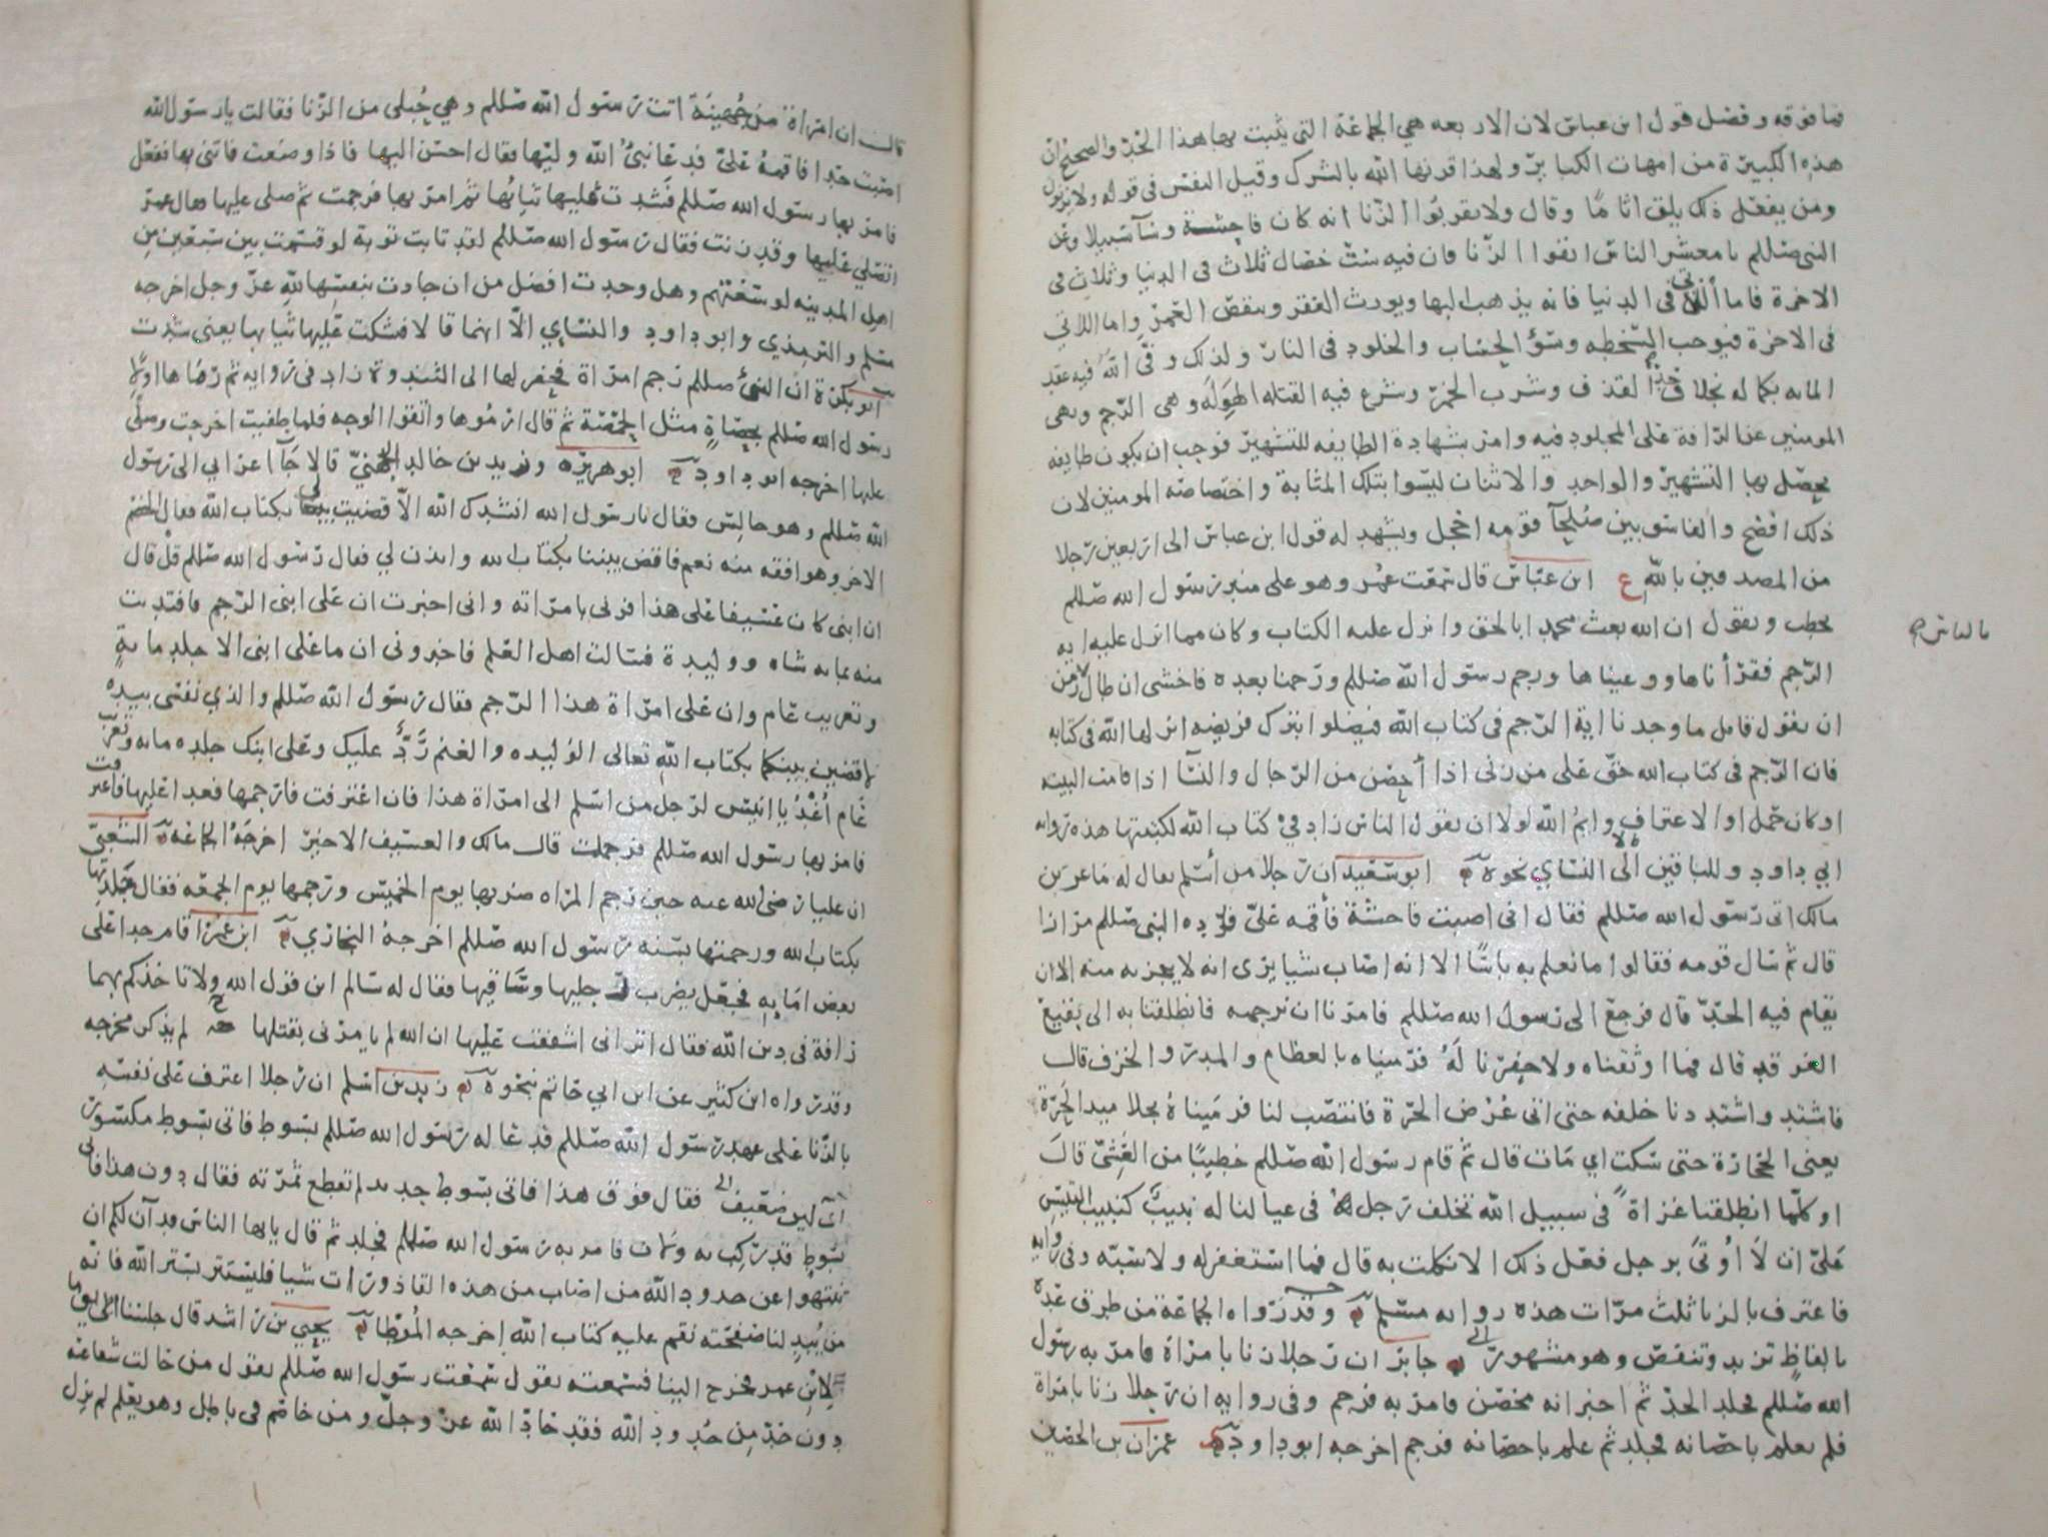 فما فوقه وفضل قول ابن عباس لان الاربعه هي الجماعة التى يثبت بها هذا الحد والصحيح ان
هذه الكبيرة من امهات الكبائر ولهذا قرنها الله بالشرك وقيل النفس فى قوله ولا يزنون
ومن يفعل ذلك يلق اثاما وقال ولا تقربوا الزنا انه كان فاحشة وسآ سبيلا وعن
النبى صللم يا معشر الناس اتقوا الزنا فان فيه ست خصال ثلاث فى الدنيا وثلاث فى
الاخرة فاما اللاتى فى الدنيا فانه يذهب البها ويورث الفقر وينقص العمر واما اللاتي
فى الاخرة فيوجب السخطه وسؤ الحساب والخلود فى النار ولذلك وفى الله فيه عقد
المايه بكماله بخلاف حد القذف وشرب الخمر وشرع فيه القتله الهوله وهى الرجم ونهى
المومنين عن الرافة على المجلود فيه وامر بشهادة الطايفه للتشهير فوجب ان يكون طايفه
يحصل بها التشهير والواحد والاثنان ليسوا بتلك المثابة واختصاصه المومنين لان
ذلك افضح والفاسق بين صلحآ قومه اخجل ويشهد له قول ابن عباس الى اربعين رجلا
من المصدقين بالله ع ابن عباس قال سمعت عمر وهو على منبر رسول الله صللم
يخطب ويقول ان الله بعث محمدا بالحق وانزل عليه الكتاب وكان مما انزل عليه ايه
الرجم فقرأناها ووعيناها ورجم رسول الله صللم ورجمنا بعده فاخشى ان طال زمن
بالناس
ان يقول قايل ما وجدنا اية الرجم فى كتاب الله فيضلوا بترك فريضه انزلها الله فى كتابه
فان الرجم فى كتاب الله حق على من زنى اذا أحصن من الرجال والنسآ اذا قامت البينه
او كان حمل او الاعتراف وايم الله لولا ان يقول الناس زاد في كتاب الله لكتبتها هذه روايه
ابي داود وللباقين الا النساي نحوه ابو سعيد ان رجلا من أسلم يقال له ماعز بن
مالك اتى رسول الله صللم فقال انى اصبت فاحشة فأقمه علىّ فرده النبى صللم مرارا
قال ثم سال قومه فقالوا ما نعلم به باسًا الا انه اصاب شيا يرى انه لا يجزيه منه الا ان
يقام فيه الحدّ قال فرجع الى رسول الله صللم فامرنا ان نرجمه فانطلقنا به الى بقيع
الغرقد قال فما اوثقناه ولا حفرنا لَهُ فرميناه بالعظام والمدر والخزف قال
فاشتد واشتددنا خلفه حتى اتى عُرْض الحرّة فانتصب لنا فرميناهُ بجلاميد الحَرّة
يعنى الحجارة حتى سكت اي مات قال ثم قام رسول الله صللم خطيبًا من العَشىّ قال
او كلّما انطلقنا غزاةً فى سبيل الله تخلف رجل فى عيالنا له نبيبٌ كنبيب التيس
علىّ ان لَا أُوتىَ برجل فعل ذلك الا نكلت به قال فما استغفر له ولا سَبّه وفى روايه
فاعترف بالزنا ثلث مرّات هذه روايه مسلم وقد رواه الجماعة من طرق عده
بالفاظٍ تزيد وتنقص وهو مشهور جابر ان رجلا زنا بامراة فامر به رسول
الله صللم فجلد الحدّ ثم اخبر انه محصَن فامر به فرجم وفى روايه ان رجلا زنا بامراة
فلم يعلم باحصانه فجلد ثم علم باحصانه فرجم اخرجه ابو داود عمران بن الحصين
قال ان امراة من جُهينة اتت رسول الله صللم وهي حُبلى من الزنا فقالت يا رسول الله
اصبت حدا فاقمهُ علىّ فدعا نبىُّ الله وليّها فقال احسن اليها فاذا وضعت فاتنى بها ففعل
فامر بها رسول الله صللم فشدت عليها ثيابُها ثم امر بها فرجمت ثم صلى عليها فقال عمر
اتصلى عليها وقد زنت فقال رسول الله صللم لقد تابت توبة لو قسمت بين سبعين من
اهل المدينه لوسعتهم وهل وجدت افضل من ان جادت بنفسها لله عزّ وجل اخرجه
مسلم والترمذي وابو داود والنساي الّا انهما قالا فشكت عليها ثيابها يعنى شدت
ابو بكرة ان النبىُّ صللم رجم امراة فحفر لها الى الثندوة زاد فى روايه ثم رماها اولًا
رسول الله صللم بحصاةٍ مثل الحمّصة ثم قال ارمُوها واتقوا الوجه فلما طفيت اخرجت وصلّى
عليها اخرجه ابو داود ابو هريره وزيد بن خالد الجهنيّ قالا جآ اعرابي الى رسول
الله صللم وهو جالس فقال يا رسول الله انشدك الله الاّ قضيت لى بكتاب الله فقال الخصم
الاخر وهو افقه منه نعم فاقض بيننا بكتاب الله وايذن لي فقال رسول الله صللم قلْ قال
ان ابنى كان عسيفا على هذا فزنى بامراته وانى اخبرت ان على ابنى الرجم فافتديت
منه بمايه شاه ووليدة فسالت اهل العلم فاخبرونى ان ما على ابنى الا جلد مايةٍ
وتغريب عام وان على امرّاة هذا الرّجم فقال رسول الله صللم والذي نفسى بيده
لاقضين بينكما بكتاب الله تعالى الوليده والغنم رَدٌّ عليك وعلى ابنك جلده مايه وتغريب
عام أُغْدُ يا انيس لرجل من اسلم الى امراة هذا فان اعترفت فارجمها فغدا عليها فاعترفت
فامر بها رسول الله صللم فرجمت قال مالك والعسيف الاجير اخرجَهُ الجماعة الشعبىّ
ان عليا رضى الله عنه حين رجم المراه ضربها يوم الخميس ورجمها يوم الجمعه فقال جلدتها
بكتاب الله ورجمتها بسنه رسول الله صللم اخرجهُ البخاري ابن عمر اقام حدا على
بعض امايه فجعل يضرب رجليها وساقيها فقال له سالم اين قول الله ولا تاخذكم بهما
رافة فى دين الله فقال اترانى اشفقت عليها ان الله لم يامرنى بقتلها لم يذكر مخرجه
وقد رواه ابن كثير عن ابن ابي حاتم بنحوه زيد بن اسلم ان رجلا اعترف على نفسه
بالزّنا على عهد رسول الله صللم فدعا له رسول الله صللم بسوط فاتى بسوط مكسور
فقال فوق هذا فاتى بسوط جديد لم تقطع ثمرته فقال دون هذا فاتى
بسوطٍ قد رُكِب به ولان فامر به رسول الله صللم فجلد ثم قال يايها الناس قد آن لكم ان
تنتهوا عن حدود الله من اصاب من هذه القاذورات شيا فليستتر بستر الله فانه
من يُبدِ لنا صفحته نقم عليه كتاب الله اخرجه المُوَطّا يحيي بن راشد قال جلسنا يوما
لابن عمر فخرج الينا فسمعته يقول سمعت رسول الله صللم يقول من حالت شفاعته
دون حدّ من حُدود الله فقد حادّ الله عزّ وجلّ ومن خاصم فى باطل وهو يعلم لم يزل